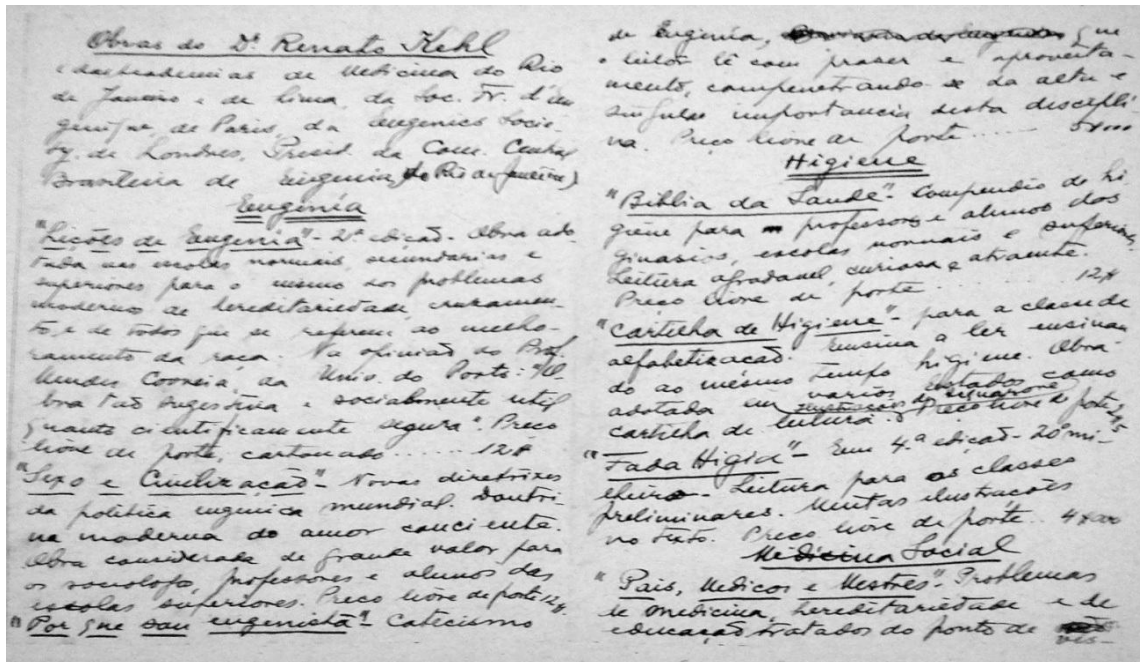 Obras do Dr. Renato Kehl
das Academias de Medicina do Rio
de Janeiro e de Lima, da Soc. Fr. d'Eu
genique, de Paris, da Eugenics Socie-
ty, de Londres, Presid. da Com. Central
Brasileira de Eugenia (Rio de Janeiro)
Eugenía
"Lições de Eugenia" - 2ª edicaõ - Obra ado-
tada nas escolas normais, secundarias e
superiores para o ensino dos problemas
modernos de hereditariedade, cruzamen-
to, e de todos que se referem ao melho-
ramento da raça. Na opiniaõ do Prof.
Mendes Correia, da Univ. do Porto: "
bra taõ sugestiva e socialmente util
quanto cientificamente segura". Preço
livre de porte, cartonado ...... 12$
"Sexo e Civilizaçaõ" - Novas diretrizes
da politica eugenica mundial. Doutri-
na moderna do amor conciente.
Obra considerada de grande valor para
os sociologos, professores e alunos das
escolas superiores. Preço livre de porte 12$.
"Por que sou eugenista" - Catecismo
de Eugenia, que
o leitor lê com prazer e aproveita-
mento, compenetrando-se da alta e
singular importancia desta discipli
na. Preço livre de porte ......
Higiene
"Biblia da Saude" - Compendio de hi
giene para professores e alunos dos
ginasios, escolas normais e superiores.
Leitura agradavel, curiosa e atraente.
Preço livre de porte ......... 12$
"Cartilha de Higiene" - para a classe de
alfabetizacaõ. Ensina a ler ensinan
do ao mesmo tempo higiene. Obra-
adotada em varios Estados como
cartilha de leitura. Preço livre de porte
"Fada Higia" - Em 4.ª edicaõ - 20º mi-
lheiro - Leitura para as classes
preliminares. Muitas ilustracões
no texto. Preço livre de porte .. 4$000
Medicina Social
"Pais, Medicos e Mestres". Problemas
de medicina, hereditariedade e de
educaçaõ, tratados do ponto de vis-